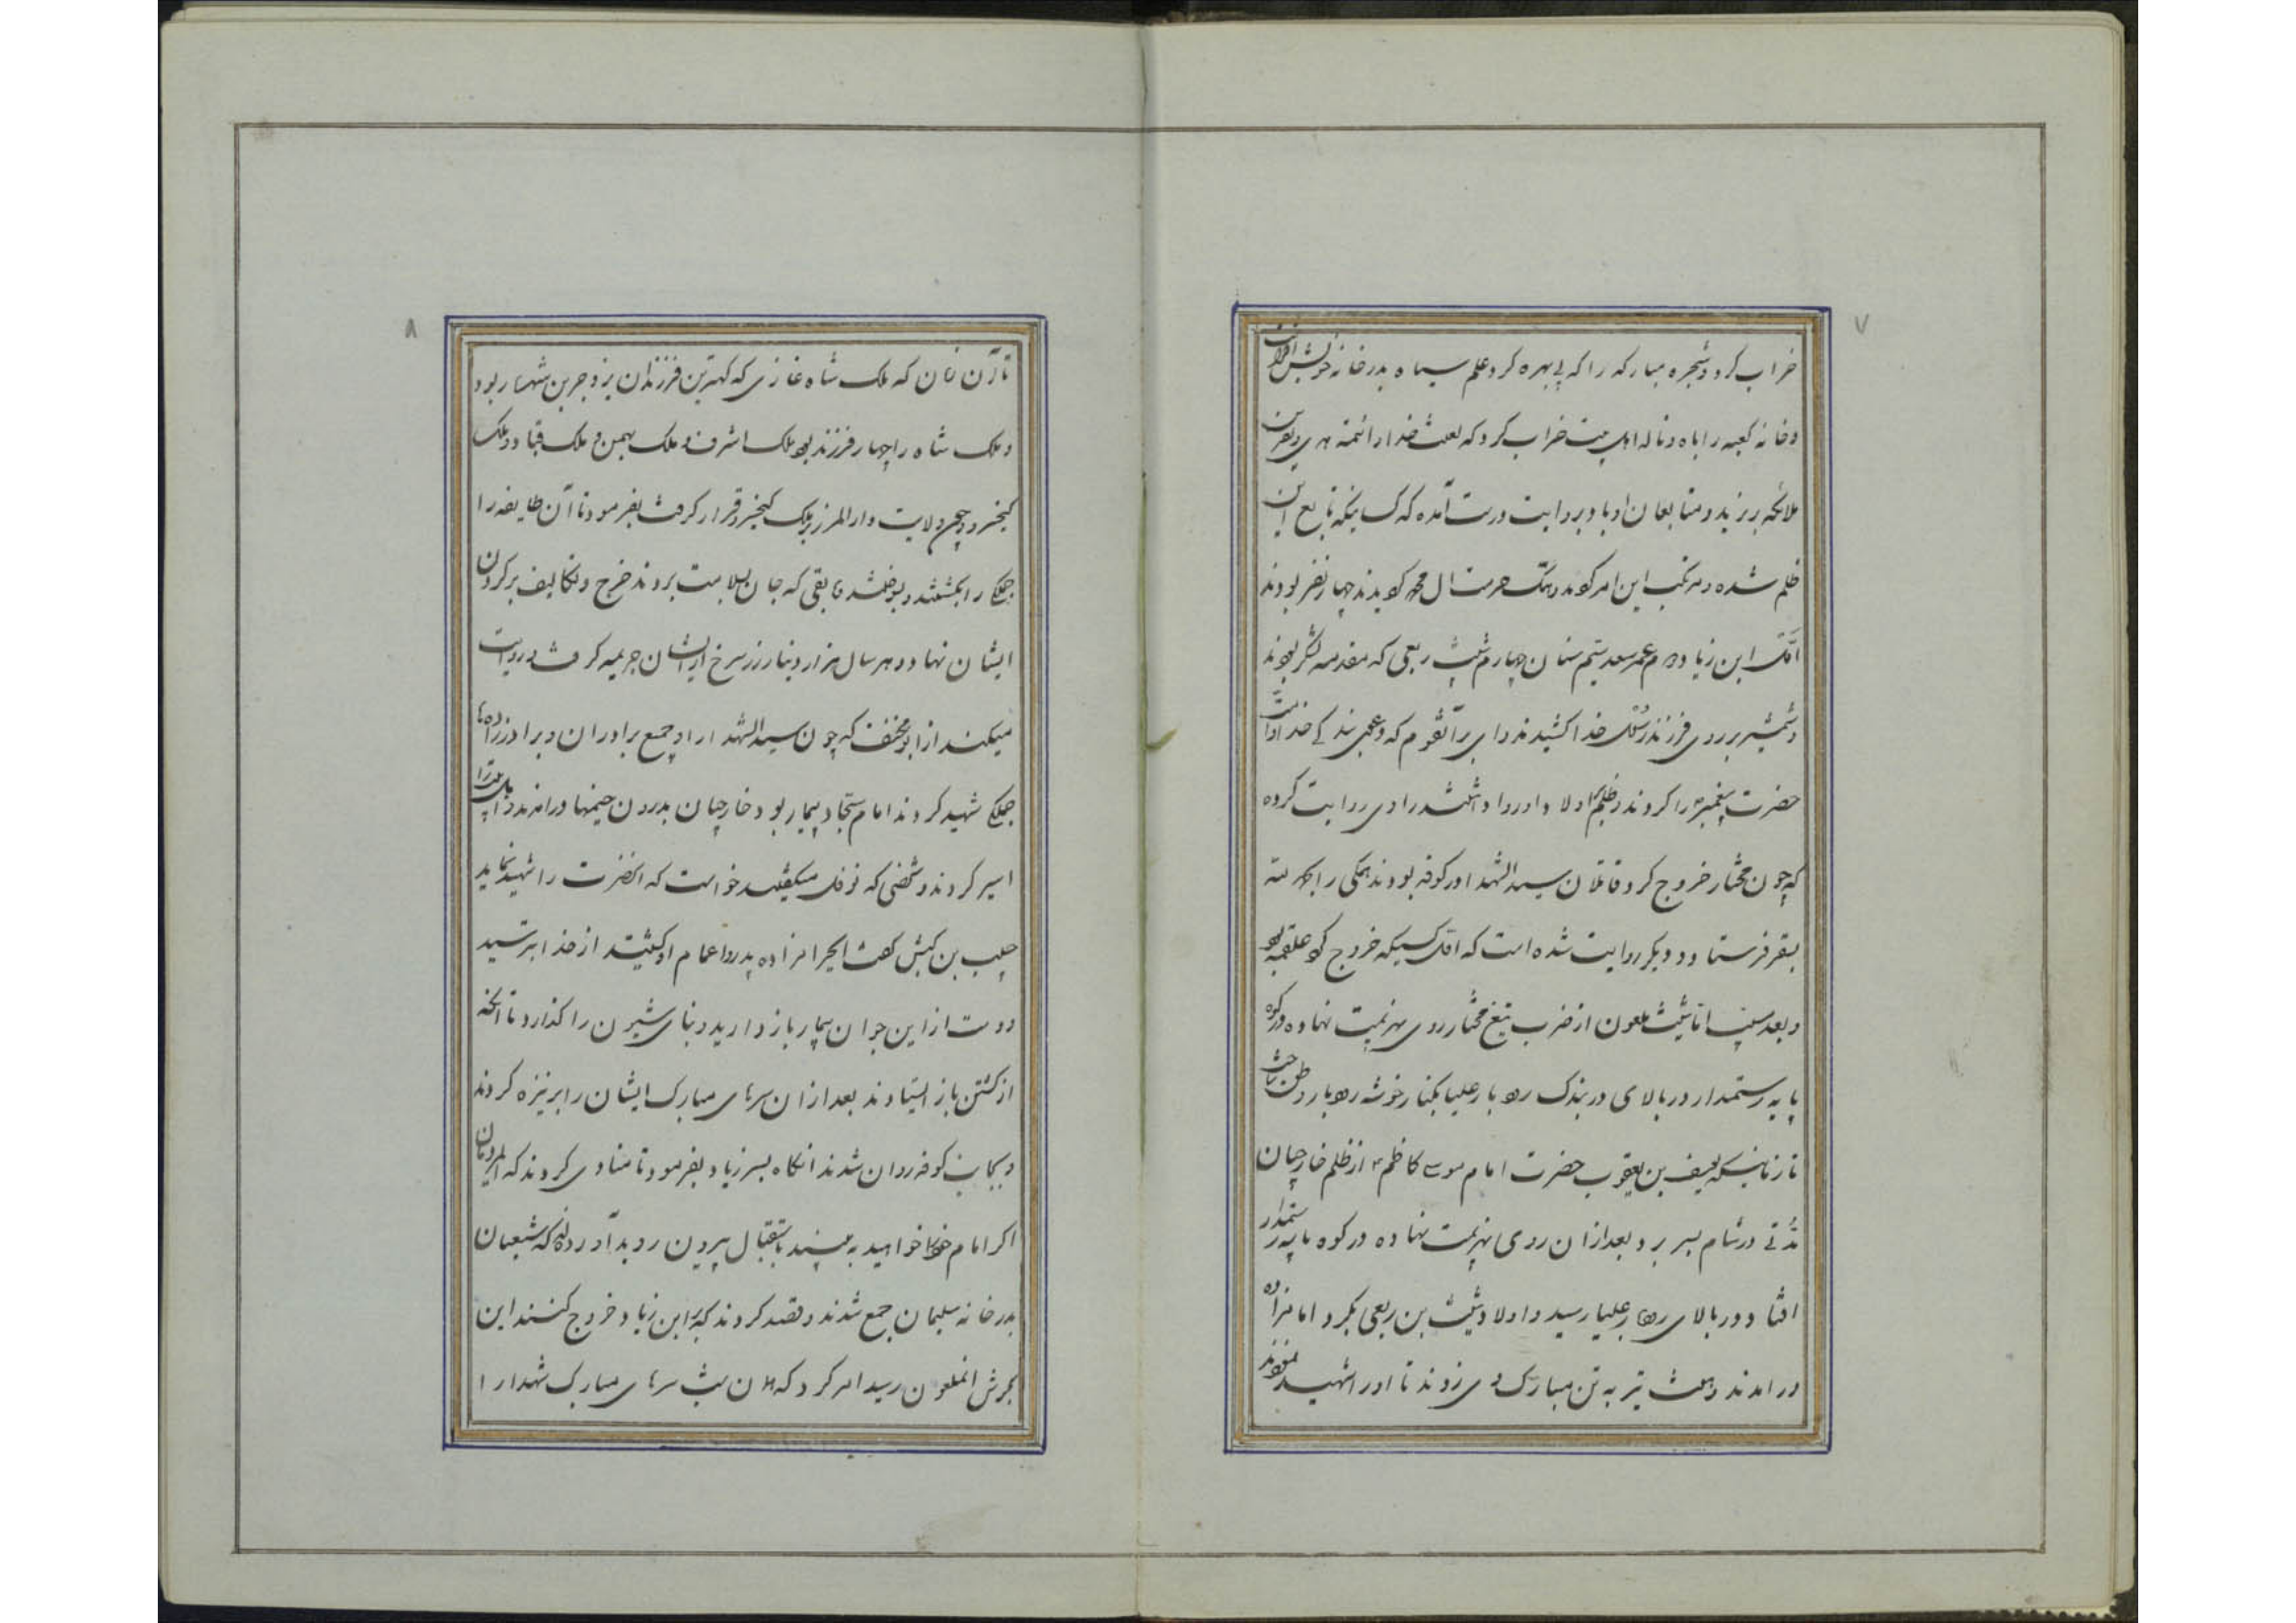 ۷
خراب کرد و شجره مبارکه را که بی بهره کرد و علم سیاه بدر خانه خویش
و خانه کعبه را باه و ناله اهل بیت خراب کرد که لعنت خدا و ائمه هدی و نفرین
ملائکه بر یزید و متابعان او باد و بروایت درست آمده که کسانیکه تابع این
ظلم شده و مرتکب این امر کردند و هتک حرمت ال محمد کردند چهار نفر بودند
اول ابن زیاد دوم عمر سعد سیم سنان چهارم شیث ربعی که مقدمه لشکر بودند
و شمشیر بر روی فرزند رسول خدا کشیدند وای بر آنقوم که دعوی بندگی خدا و امت
حضرت پیغمبر را کردند و ظلم بر اولاد او روا داشتند راوی روایت کرده
که چون مختار خروج کرد قاتلان سید الشهدا در کوفه بودند همگی را
بسقر فرستاد و دیگر روایت شده است که اول کسیکه خروج کرد علقمه بود
و بعد مسیب اما شیث ملعون از ضرب تیغ مختار روی بهزیمت نهاده در کوه
پایه رستمدار در بالای دربندک رودبار علیا بکنار خوشه رودبار وطن ساخت
تا زمانیکه یوسف بن یعقوب حضرت امام موسی کاظم از ظلم خارجیان
مدتی در شام بسر برد بعد از ان روی بهزیمت نهاده در کوه پایه رستمدار
افتاد و در بالای رودبار علیا رسید و اولاد شیث بن ربعی بگرد امامزاده
در امدند و هشت تیر به تن مبارک وی زدند تا او را شهید نمودند
۸
تا آن زمان که ملک شاه غازی که کهترین فرزندان یزدجرد بن شهریار بود
و ملک شاه را چهار فرزند بود ملک اشرف و ملک بهمن و ملک قباد و ملک
کیخسرو و چون ولایت دارالمرز بر ملک کیخسرو قرار گرفت بفرمود تا آن طایفه را
جملگی را بکشتند و بوختند مابقی که جان بسلامت بردند خرج و تکالیف بر گردن
ایشان نهاد و هر سال هزار دینار زر سرخ از ایشان جریمه گرفت و روایت
میکنند از ابو مخنف که چون سید الشهدا را و جمع برادران و برادرزاده‌ها
جملگی شهید کردند امام سجاد بیمار بود خارجیان بدرون خیمها در امدند و اهل بیت را
اسیر کردند و شخصی که نوفل میگفتند خواست که انحضرت را شهید نماید
حلب بن کبش گفت ایحرامزاده پدر و اعمام او کشتید از خدا بترسید
دست از این جوان بیمار باز دارید دنیای شیرین را گذارد تا انکه
از کشتن باز ایستادند بعد از ان سرهای مبارک ایشان را بر نیزه کردند
و بجانب کوفه روان شدند انگاه پسر زیاد بفرمود تا منادی کردند که ایمردمان
اگر امام خود را خواهید به بینید باستقبال بیرون روید آورده‌اند که شیعیان
بدر خانه سلیمان جمع شدند و قصد کردند که بر ابن زیاد خروج کنند این
بگوش انملعون رسید امر کرد که همان شب سرهای مبارک شهدا را